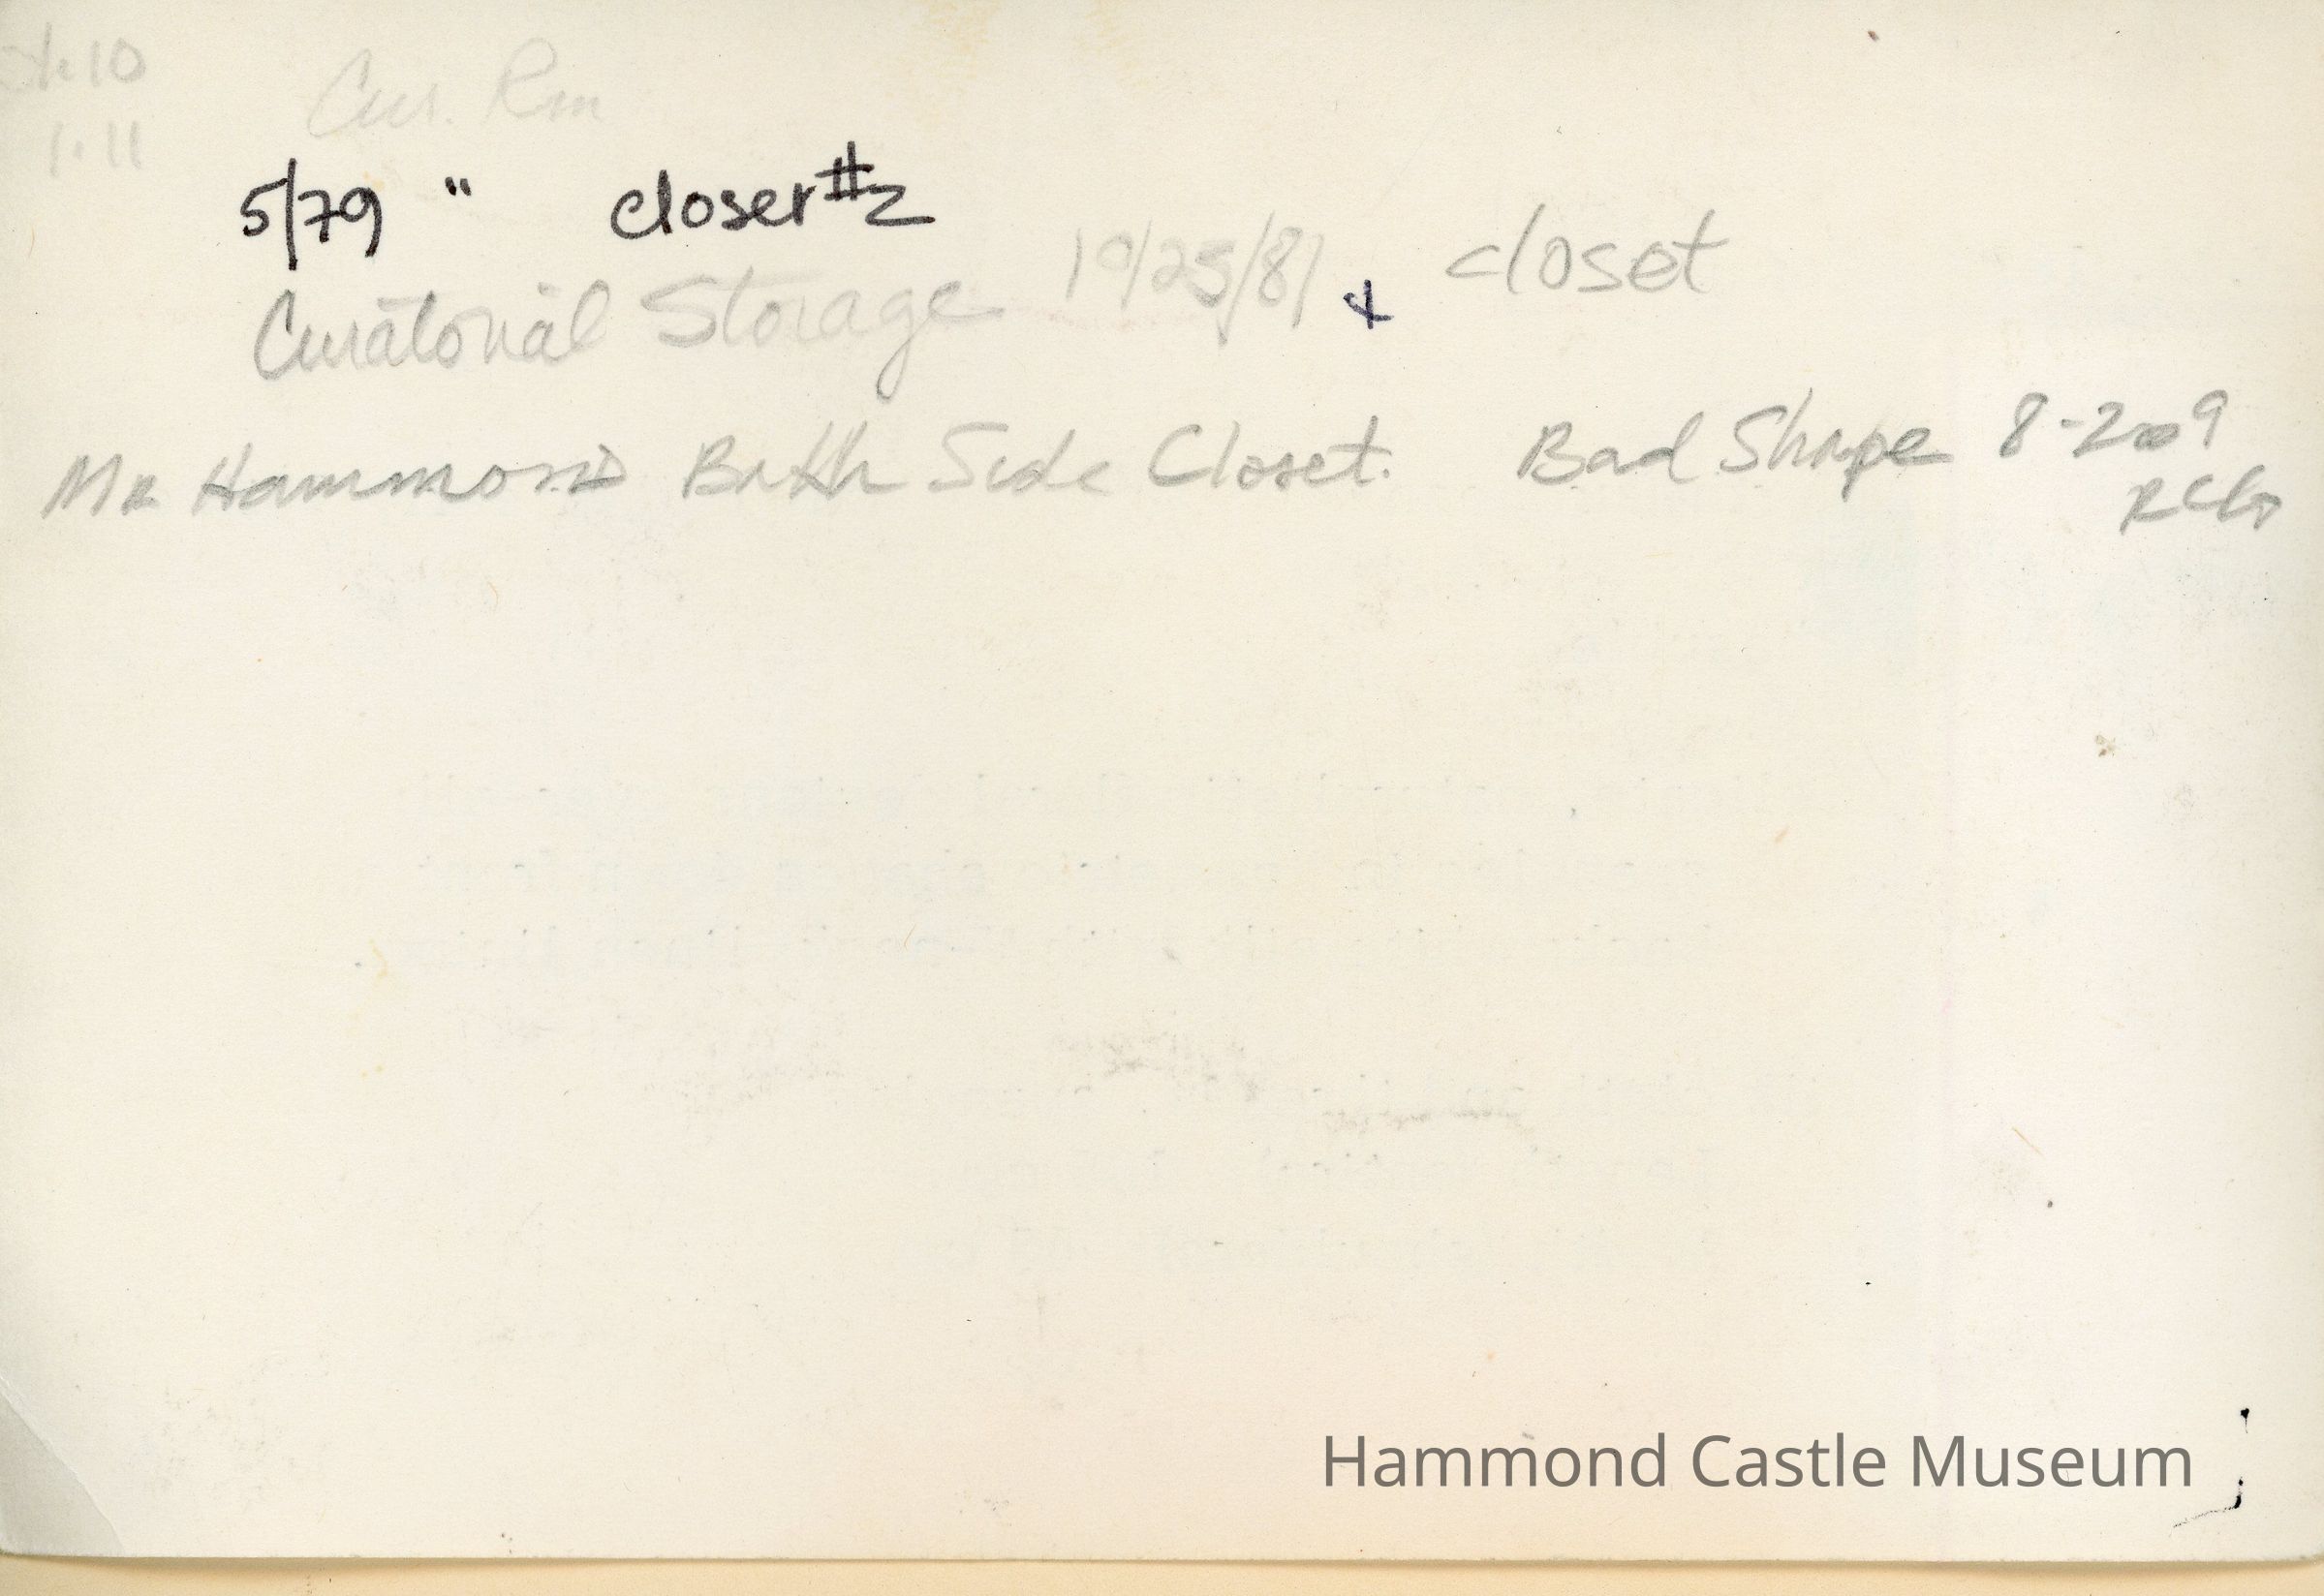 1.10
Cur. Rm
1.11
5/79 " closet #2
Curatorial Storage 10/25/81 & closet
Mr Hammond Bath Side Closet. Bad Shape 8-2009
RCG
Hammond Castle Museum